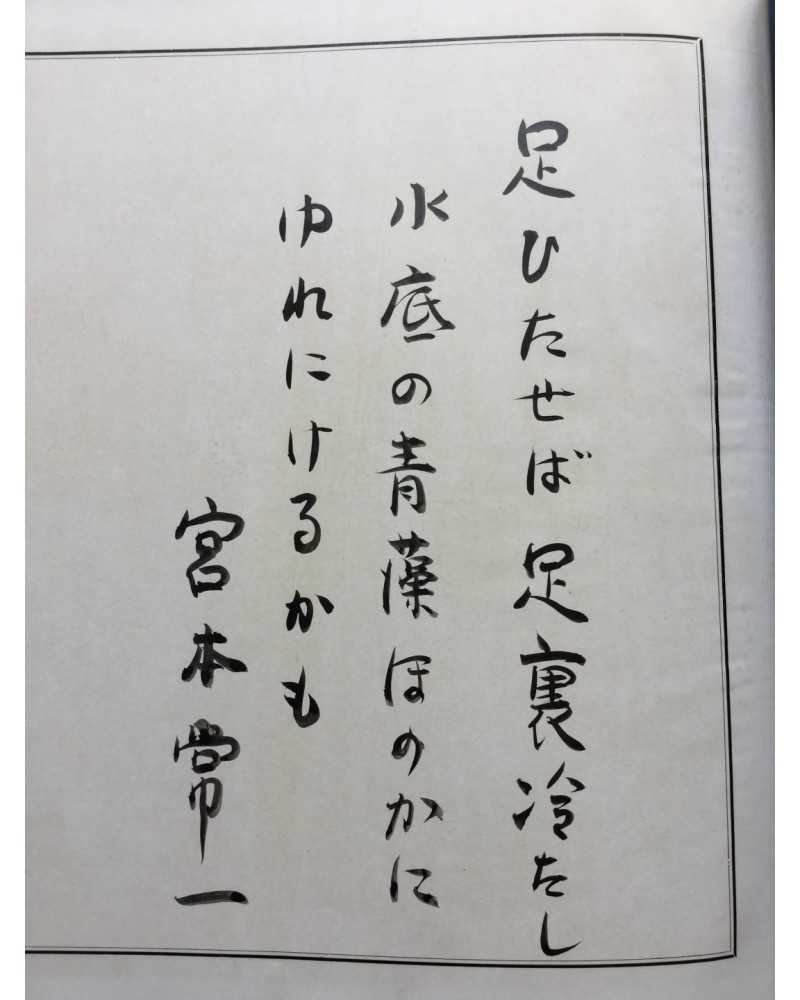 足ひたせば足裏冷たし
水底の青藻ほのかに
ゆれにけるかも
宮本常一